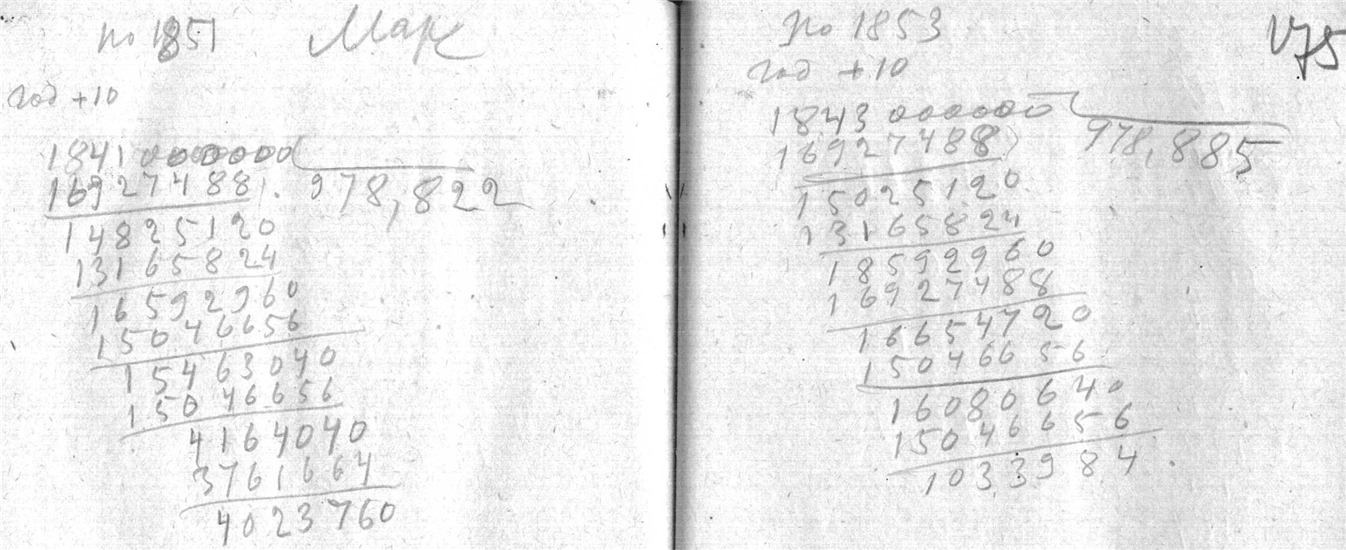 по 1851 Марк
год +10
1841000000
16927488 978,822
14825120
13165824
16592960
15046656
15463040
15046656
4164040
3761664
4023760
по 1853 V75
год +10
1843000000
16927488 978,885
15025120
13165824
18592960
16927488
16654720
15046656
16080640
15046656
1033984